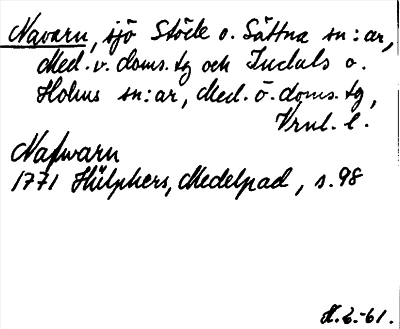 Navarn, sjö Stöde o. Sättna sn:ar,
Med. v. doms. tg och Indals o.
Holms sn:ar, Med. ö. doms. tg,
Vrnl. l.
Nafwarn
1771 Hülphers, Medelpad, s. 98